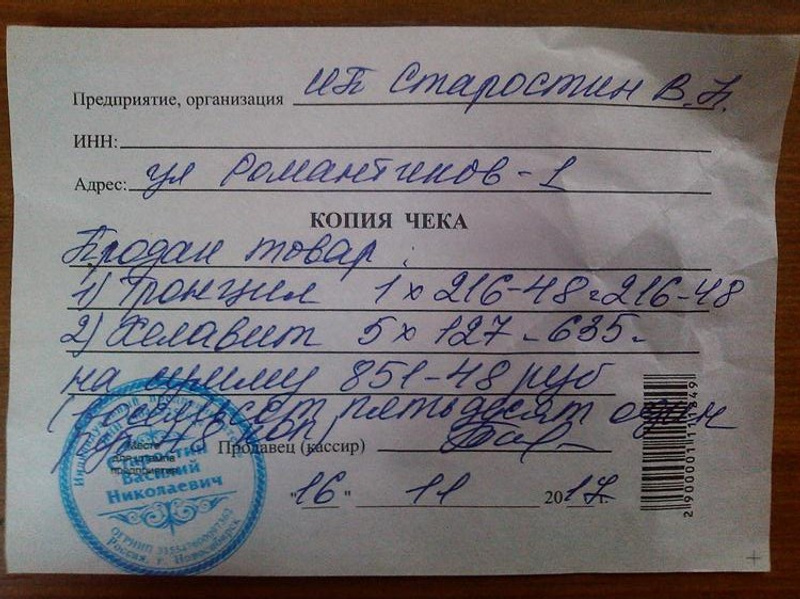 Предприятие, организация ИП Старостин В.Н.
ИНН:
Адрес: ул Романтиков-1
КОПИЯ ЧЕКА
Продан товар:
1) Тронцил 1 х 216-48=216-48
2) Хелавит 5 х 127 - 635 -
на сумму 851-48 руб
(восемьсот пятьдесят один
руб 48 коп)
Продавец (кассир)
Место
для штампа
предприятия
Старостин
Василий
Николаевич
Россия, г. Новосибирск
"16" 11 2017 г.
2900001111849